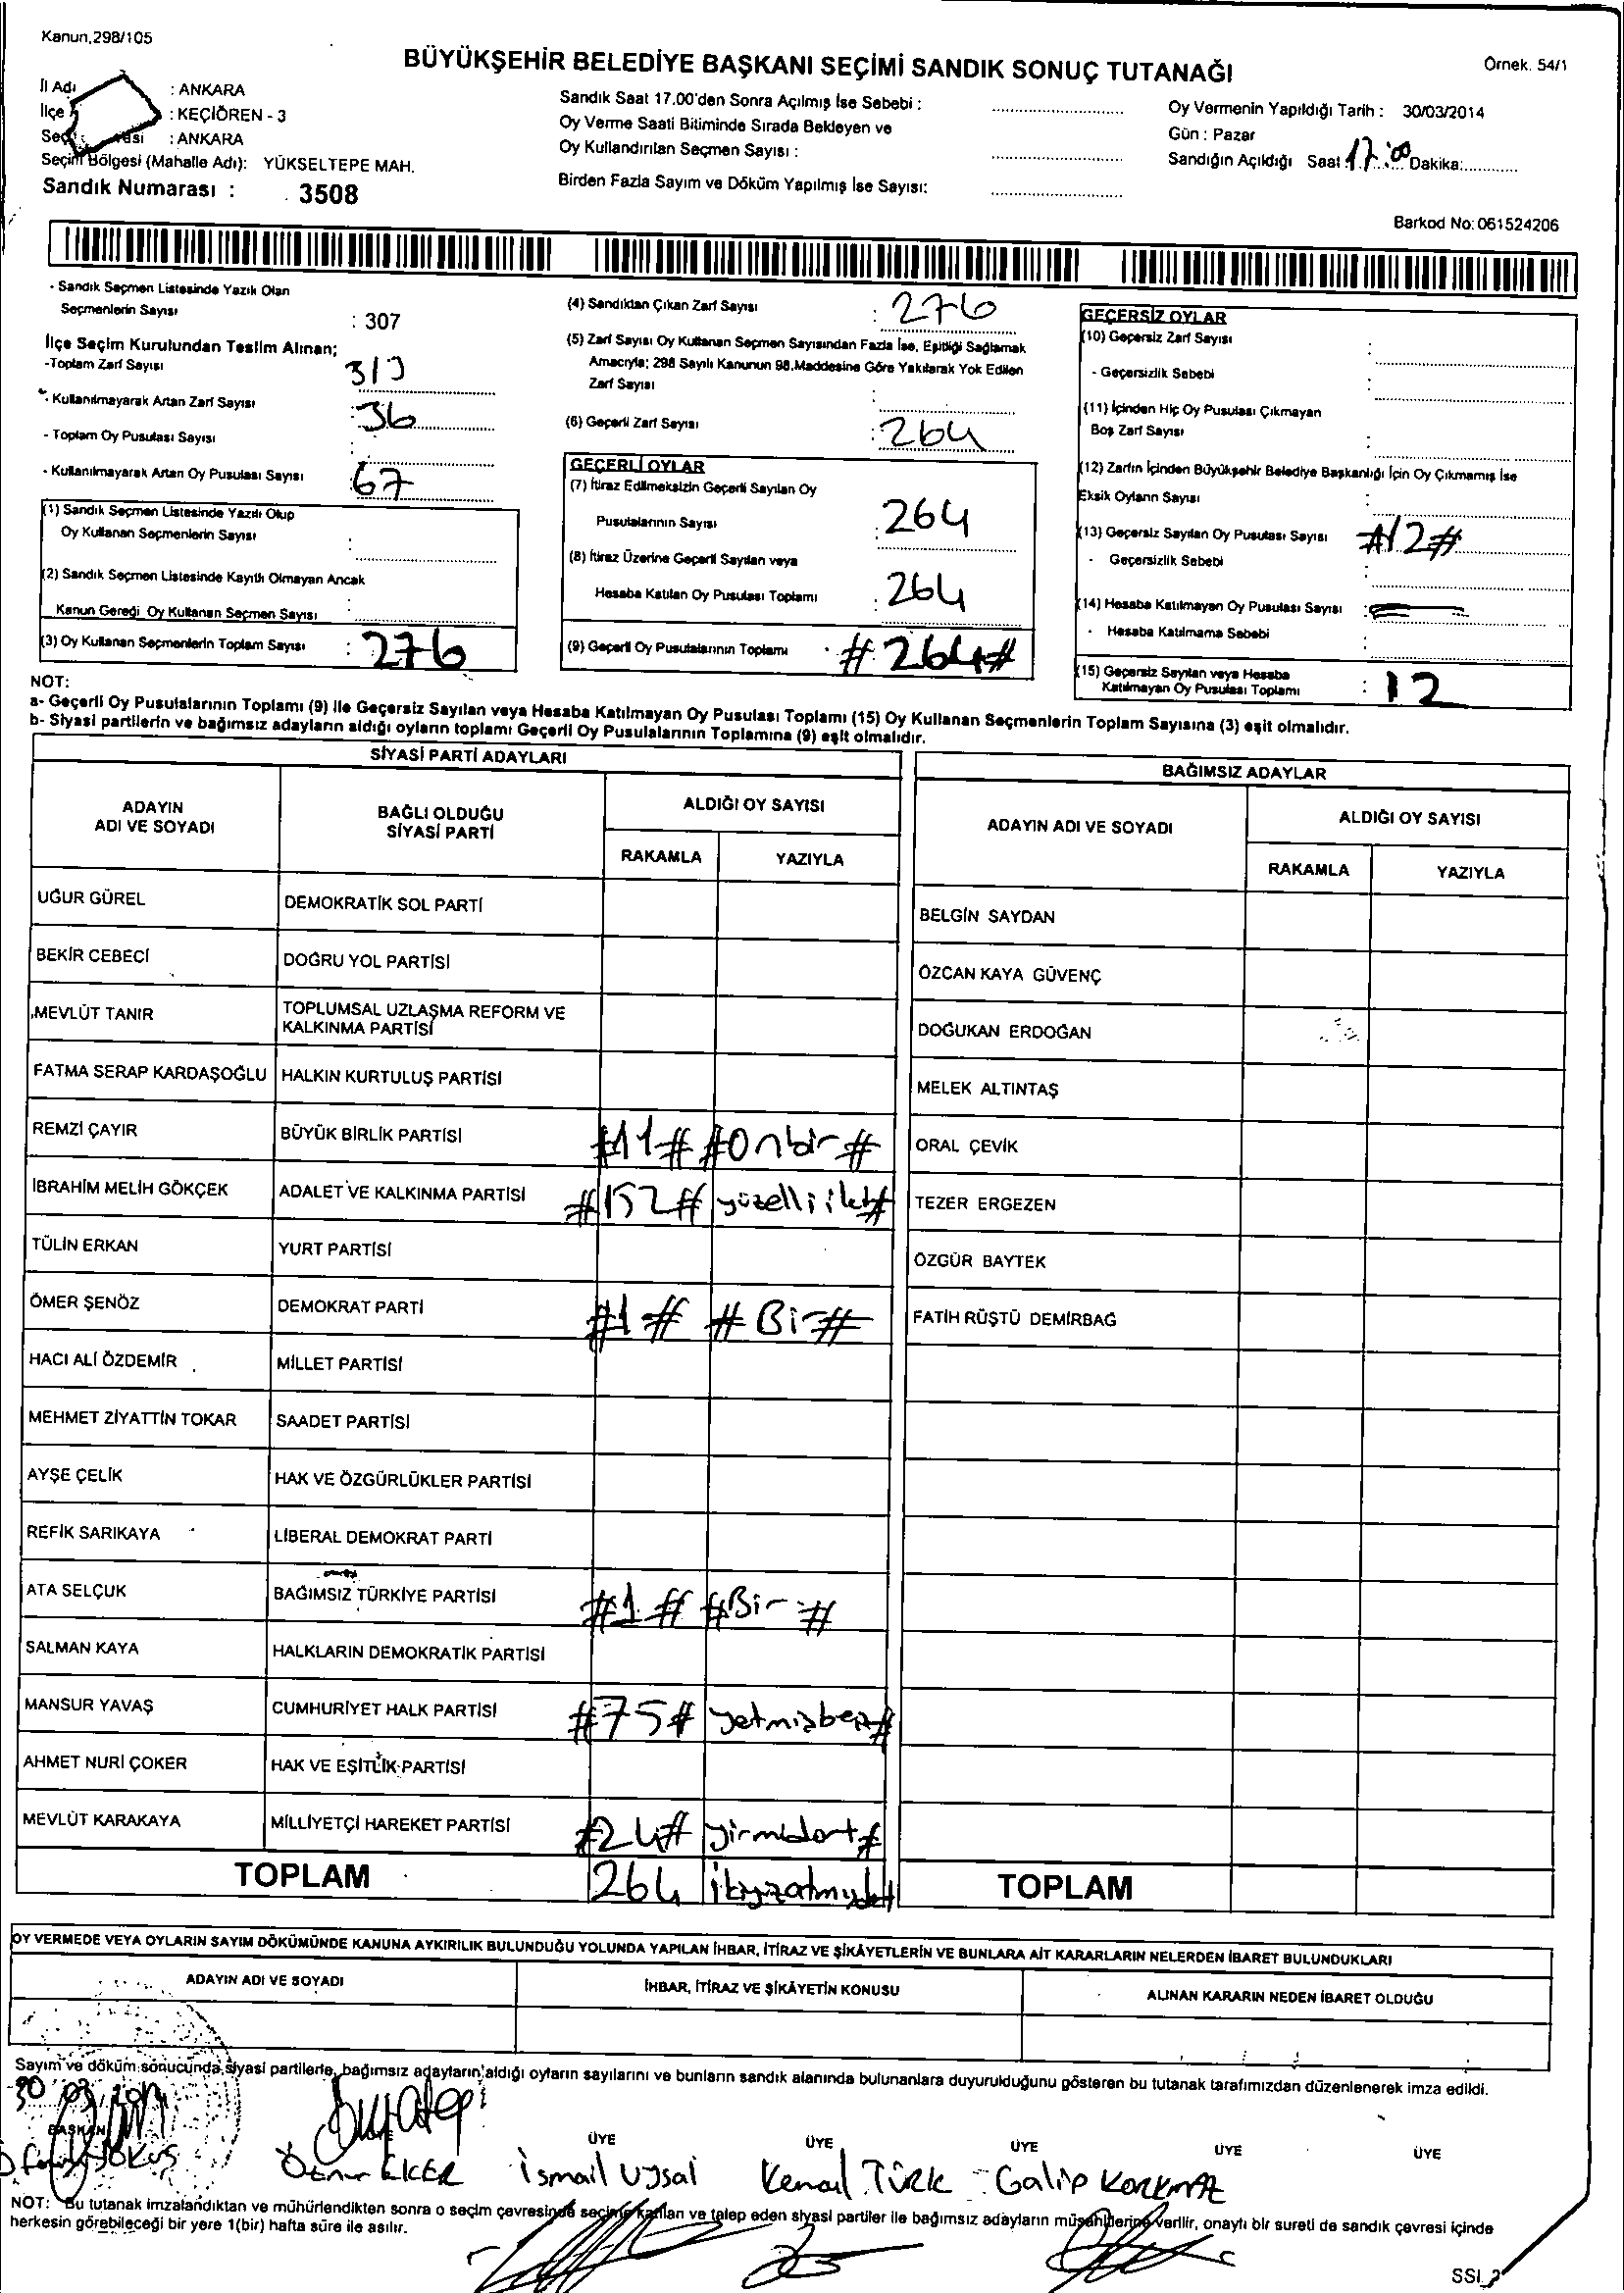 Kanun,298/105
BÜYÜKŞEHİR BELEDİYE BAŞKANI SEÇİMİ SANDIK SONUÇ TUTANAĞI
Örnek. 54/1
İl Adı : ANKARA
İlçe : KEÇİÖREN - 3
: ANKARA
Seçim Bölgesi (Mahalle Adı): YÜKSELTEPE MAH.
Sandık Numarası : 3508
Sandık Saat 17.00'den Sonra Açılmış İse Sebebi :
Oy Verme Saati Bitiminde Sırada Bekleyen ve
Oy Kullandırılan Seçmen Sayısı :
Birden Fazla Sayım ve Döküm Yapılmış İse Sayısı:
Oy Vermenin Yapıldığı Tarih : 30/03/2014
Gün : Pazar
Sandığın Açıldığı Saat 17:00 Dakika:
Barkod No: 061524206
- Sandık Seçmen Listesinde Yazılı Olan
Seçmenlerin Sayısı : 307
İlçe Seçim Kurulundan Teslim Alınan;
-Toplam Zarf Sayısı
- Kullanılmayarak Artan Zarf Sayısı : 36
- Toplam Oy Pusulası Sayısı :
- Kullanılmayarak Artan Oy Pusulası Sayısı : 67
(1) Sandık Seçmen Listesinde Yazılı Olup
Oy Kullanan Seçmenlerin Sayısı :
(2) Sandık Seçmen Listesinde Kayıtlı Olmayan Ancak
Kanun Gereği Oy Kullanan Seçmen Sayısı :
(3) Oy Kullanan Seçmenlerin Toplam Sayısı : 276
(4) Sandıktan Çıkan Zarf Sayısı : 276
(5) Zarf Sayısı Oy Kullanan Seçmen Sayısından Fazla İse, Eşitliği Sağlamak
Amacıyla; 298 Sayılı Kanunun 98.Maddesine Göre Yakılarak Yok Edilen
Zarf Sayısı :
(6) Geçerli Zarf Sayısı : 264
GEÇERLİ OYLAR
(7) İtiraz Edilmeksizin Geçerli Sayılan Oy
Pusulalarının Sayısı : 264
(8) İtiraz Üzerine Geçerli Sayılan veya
Hesaba Katılan Oy Pusulası Toplamı : 264
(9) Geçerli Oy Pusulalarının Toplamı : #264#
GEÇERSİZ OYLAR
(10) Geçersiz Zarf Sayısı :
- Geçersizlik Sebebi :
(11) İçinden Hiç Oy Pusulası Çıkmayan
Boş Zarf Sayısı :
(12) Zarfın İçinden Büyükşehir Belediye Başkanlığı İçin Oy Çıkmamış İse
Eksik Oyların Sayısı :
(13) Geçersiz Sayılan Oy Pusulası Sayısı #12#
- Geçersizlik Sebebi :
(14) Hesaba Katılmayan Oy Pusulası Sayısı :
- Hesaba Katılmama Sebebi :
(15) Geçersiz Sayılan veya Hesaba
Katılmayan Oy Pusulası Toplamı : 12
NOT:
a- Geçerli Oy Pusulalarının Toplamı (9) ile Geçersiz Sayılan veya Hesaba Katılmayan Oy Pusulası Toplamı (15) Oy Kullanan Seçmenlerin Toplam Sayısına (3) eşit olmalıdır.
b- Siyasi partilerin ve bağımsız adayların aldığı oyların toplamı Geçerli Oy Pusulalarının Toplamına (9) eşit olmalıdır.
SİYASİ PARTİ ADAYLARI
ADAYIN ADI VE SOYADI
BAĞLI OLDUĞU SİYASİ PARTİ
ALDIĞI OY SAYISI
RAKAMLA YAZIYLA
UĞUR GÜREL DEMOKRATİK SOL PARTİ
BEKİR CEBECİ DOĞRU YOL PARTİSİ
MEVLÜT TANIR TOPLUMSAL UZLAŞMA REFORM VE KALKINMA PARTİSİ
FATMA SERAP KARDAŞOĞLU HALKIN KURTULUŞ PARTİSİ
REMZİ ÇAYIR BÜYÜK BİRLİK PARTİSİ #11# #Onbir#
İBRAHİM MELİH GÖKÇEK ADALET VE KALKINMA PARTİSİ #152# yüzelliiki#
TÜLİN ERKAN YURT PARTİSİ
ÖMER ŞENÖZ DEMOKRAT PARTİ #1# #Bir#
HACI ALİ ÖZDEMİR MİLLET PARTİSİ
MEHMET ZİYATTİN TOKAR SAADET PARTİSİ
AYŞE ÇELİK HAK VE ÖZGÜRLÜKLER PARTİSİ
REFİK SARIKAYA LİBERAL DEMOKRAT PARTİ
ATA SELÇUK BAĞIMSIZ TÜRKİYE PARTİSİ #1# #Bir#
SALMAN KAYA HALKLARIN DEMOKRATİK PARTİSİ
MANSUR YAVAŞ CUMHURİYET HALK PARTİSİ #75# yetmişbeş#
AHMET NURİ ÇOKER HAK VE EŞİTLİK PARTİSİ
MEVLÜT KARAKAYA MİLLİYETÇİ HAREKET PARTİSİ #24# yirmidört#
TOPLAM 264
BAĞIMSIZ ADAYLAR
ADAYIN ADI VE SOYADI
ALDIĞI OY SAYISI
RAKAMLA YAZIYLA
BELGİN SAYDAN
ÖZCAN KAYA GÜVENÇ
DOĞUKAN ERDOĞAN
MELEK ALTINTAŞ
ORAL ÇEVİK
TEZER ERGEZEN
ÖZGÜR BAYTEK
FATİH RÜŞTÜ DEMİRBAĞ
TOPLAM
OY VERMEDE VEYA OYLARIN SAYIM DÖKÜMÜNDE KANUNA AYKIRILIK BULUNDUĞU YOLUNDA YAPILAN İHBAR, İTİRAZ VE ŞİKÂYETLERİN VE BUNLARA AİT KARARLARIN NELERDEN İBARET BULUNDUKLARI
ADAYIN ADI VE SOYADI
İHBAR, İTİRAZ VE ŞİKÂYETİN KONUSU
ALINAN KARARIN NEDEN İBARET OLDUĞU
Sayım ve döküm sonucunda siyasi partilerle, bağımsız adayların aldığı oyların sayılarını ve bunların sandık alanında bulunanlara duyurulduğunu gösteren bu tutanak tarafımızdan düzenlenerek imza edildi.
30 03 2014
BAŞKAN
ÜYE ÜYE ÜYE ÜYE ÜYE
EKER İsmail Uysal Kemal TÜRK Galip KORKMAZ
NOT: Bu tutanak imzalandıktan ve mühürlendikten sonra o seçim çevresinde seçime katılan ve talep eden siyasi partiler ile bağımsız adayların müşahitlerine verilir, onaylı bir sureti de sandık çevresi içinde
herkesin görebileceği bir yere 1(bir) hafta süre ile asılır.